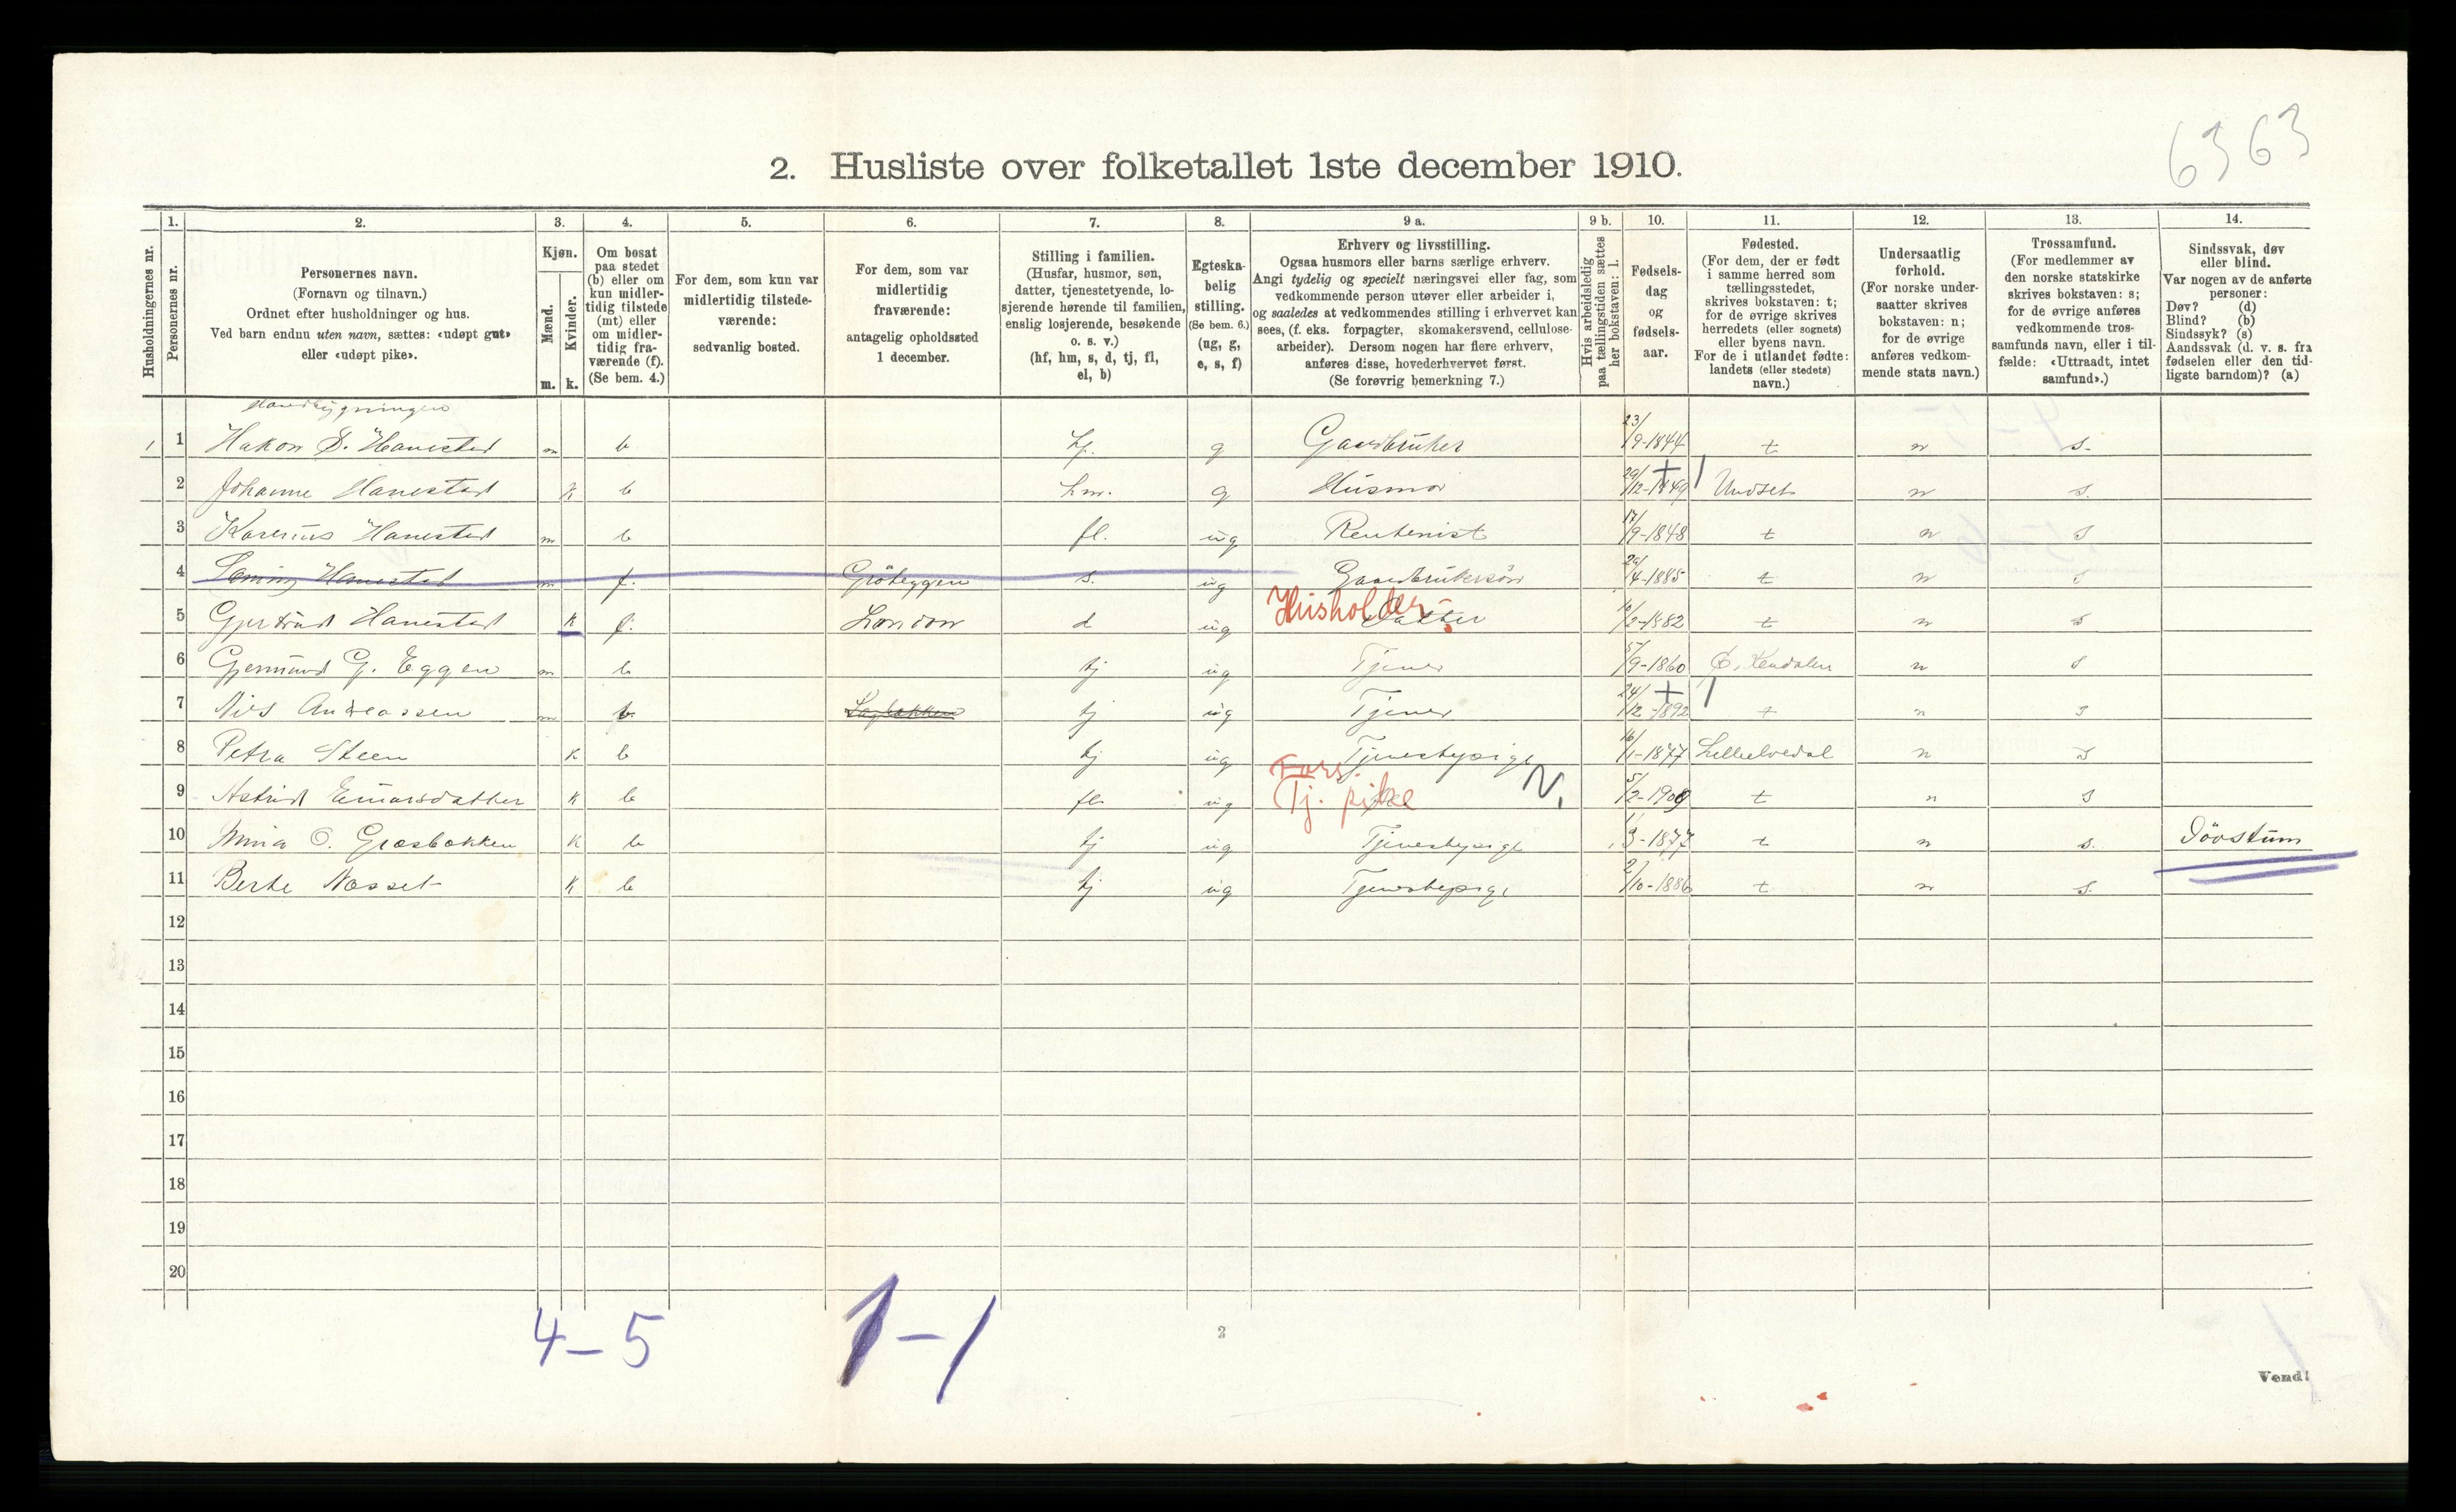 6363
2. Husliste over folketallet 1ste december 1910.
Husholdningernes nr.
1.
Personernes nr.
2.
Personernes navn.
(Fornavn og tilnavn.)
Ordnet efter husholdninger og hus.
Ved barn endnu uten navn, sættes: «udøpt gut»
eller «udøpt pike».
3.
Kjøn.
Mænd.
m.
Kvinder.
k.
4.
Om bosat
paa stedet
(b) eller om
kun midler-
tidig tilstede
(mt) eller
om midler-
tidig fra-
værende (f).
(Se bem. 4.)
5.
For dem, som kun var
midlertidig tilstede-
værende:
sedvanlig bosted.
6.
For dem, som var
midlertidig
fraværende:
antagelig opholdssted
1 december.
7.
Stilling i familien.
(Husfar, husmor, søn,
datter, tjenestetyende, lo-
sjerende hørende til familien,
enslig losjerende, besøkende
o. s. v.)
(hf, hm, s, d, tj, fl,
el, b)
8.
Egteska-
belig
stilling.
(Se bem. 6.)
(ug, g,
e, s, f)
9 a.
Erhverv og livsstilling.
Ogsaa husmors eller barns særlige erhverv.
Angi tydelig og specielt næringsvei eller fag, som
vedkommende person utøver eller arbeider i,
og saaledes at vedkommendes stilling i erhvervet kan
sees, (f. eks. forpagter, skomakersvend, cellulose-
arbeider). Dersom nogen har flere erhverv,
anføres disse, hovederhvervet først.
(Se forøvrig bemerkning 7.)
9 b.
Hvis arbeidsledig
paa tællingstiden sættes
her bokstaven: l.
10.
Fødsels-
dag
og
fødsels-
aar.
11.
Fødested.
(For dem, der er født
i samme herred som
tællingsstedet,
skrives bokstaven: t;
for de øvrige skrives
herredets (eller sognets)
eller byens navn.
For de i utlandet fødte:
landets (eller stedets)
navn.)
12.
Undersaatlig
forhold.
(For norske under-
saatter skrives
bokstaven: n;
for de øvrige
anføres vedkom-
mende stats navn.)
13.
Trossamfund.
(For medlemmer av
den norske statskirke
skrives bokstaven: s;
for de øvrige anføres
vedkommende tros-
samfunds navn, eller i til-
fælde: «Uttraadt, intet
samfund».)
14.
Sindssvak, døv
eller blind.
Var nogen av de anførte
personer:
Døv? (d)
Blind? (b)
Sindssyk? (s)
Aandssvak (d. v. s. fra
fødselen eller den tid-
ligste barndom)? (a)
1 1 Hakon D. Hanestad m b hf. g Gaardbruker 23/9-1844 t n s.
2 Johanne Hanestad k b hm. g Husmor 29/12-1849 Undset n s.
3 Karenius Hanestad m b fl. ug Rentenist 17/9-1848 t n s
4 Hanestad m f. s. ug Gaardbrukersøn 26/4-1885 t n s
5 Gjertrud Hanestad k f. London d ug Datter Husholder. 10/2-1882 t n s
6 Gjermund G. Eggen m b tj ug Tjener 5/9-1860 Ø. Rendalen n s
7 Nils Andreassen m b tj ug Tjener 24/12-1892 t n s
8 Petra Steen k b tj ug Tjenestepige 16/1-1877 Lilleelvedal n s
9 Astrid Einarsdatter k b fl. ug Fors. Tj. pike N. 5/2-1909 t n s
10 Mina O. Græsbakken k b tj ug Tjenestepige 1/3-1877 t n s. Døvstum
11 Berte Næsset k b tj ug Tjenestepige 2/10-1886 t n s.
12
13
14
15
16
17
18
19
20
4-5
1-1
2
Vend!